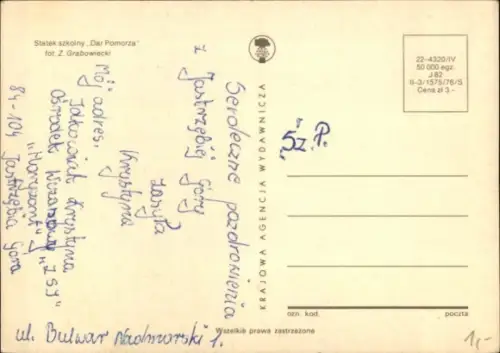 Statek szkolny „Dar Pomorza”
fot. Z. Grabowiecki
22-4320/IV
50 000 egz.
J-82
II-3/1575/76/S
Cena zł 3.-
KRAJOWA AGENCJA WYDAWNICZA
Serdeczne pozdrowienia
z
Jastrzębiej Góry
Krystyna
Mój adres:
Krystyna
Ośrodek
84-104 Jastrzębia Góra
ul. Bulwar Nadmorski 1.
„Sz. P.
ozn. kod.
poczta
Wszelkie prawa zastrzeżone
1,-